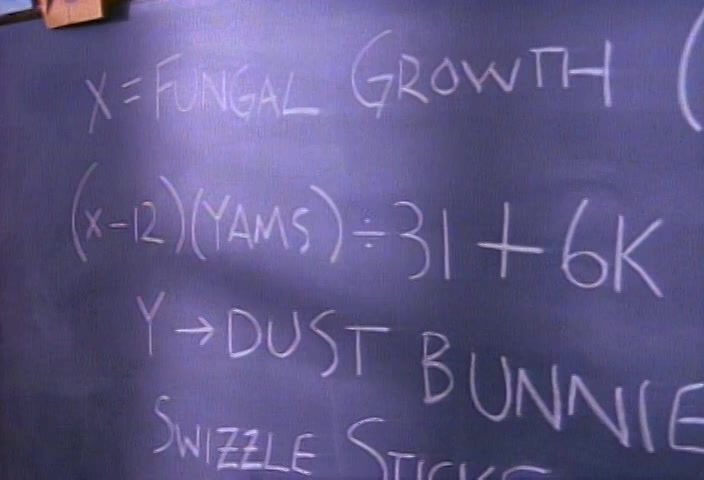 X = FUNGAL GROWTH (
(X-12)(YAMS) ÷ 31 + 6K
Y → DUST BUNNIE
SWIZZLE STICKS